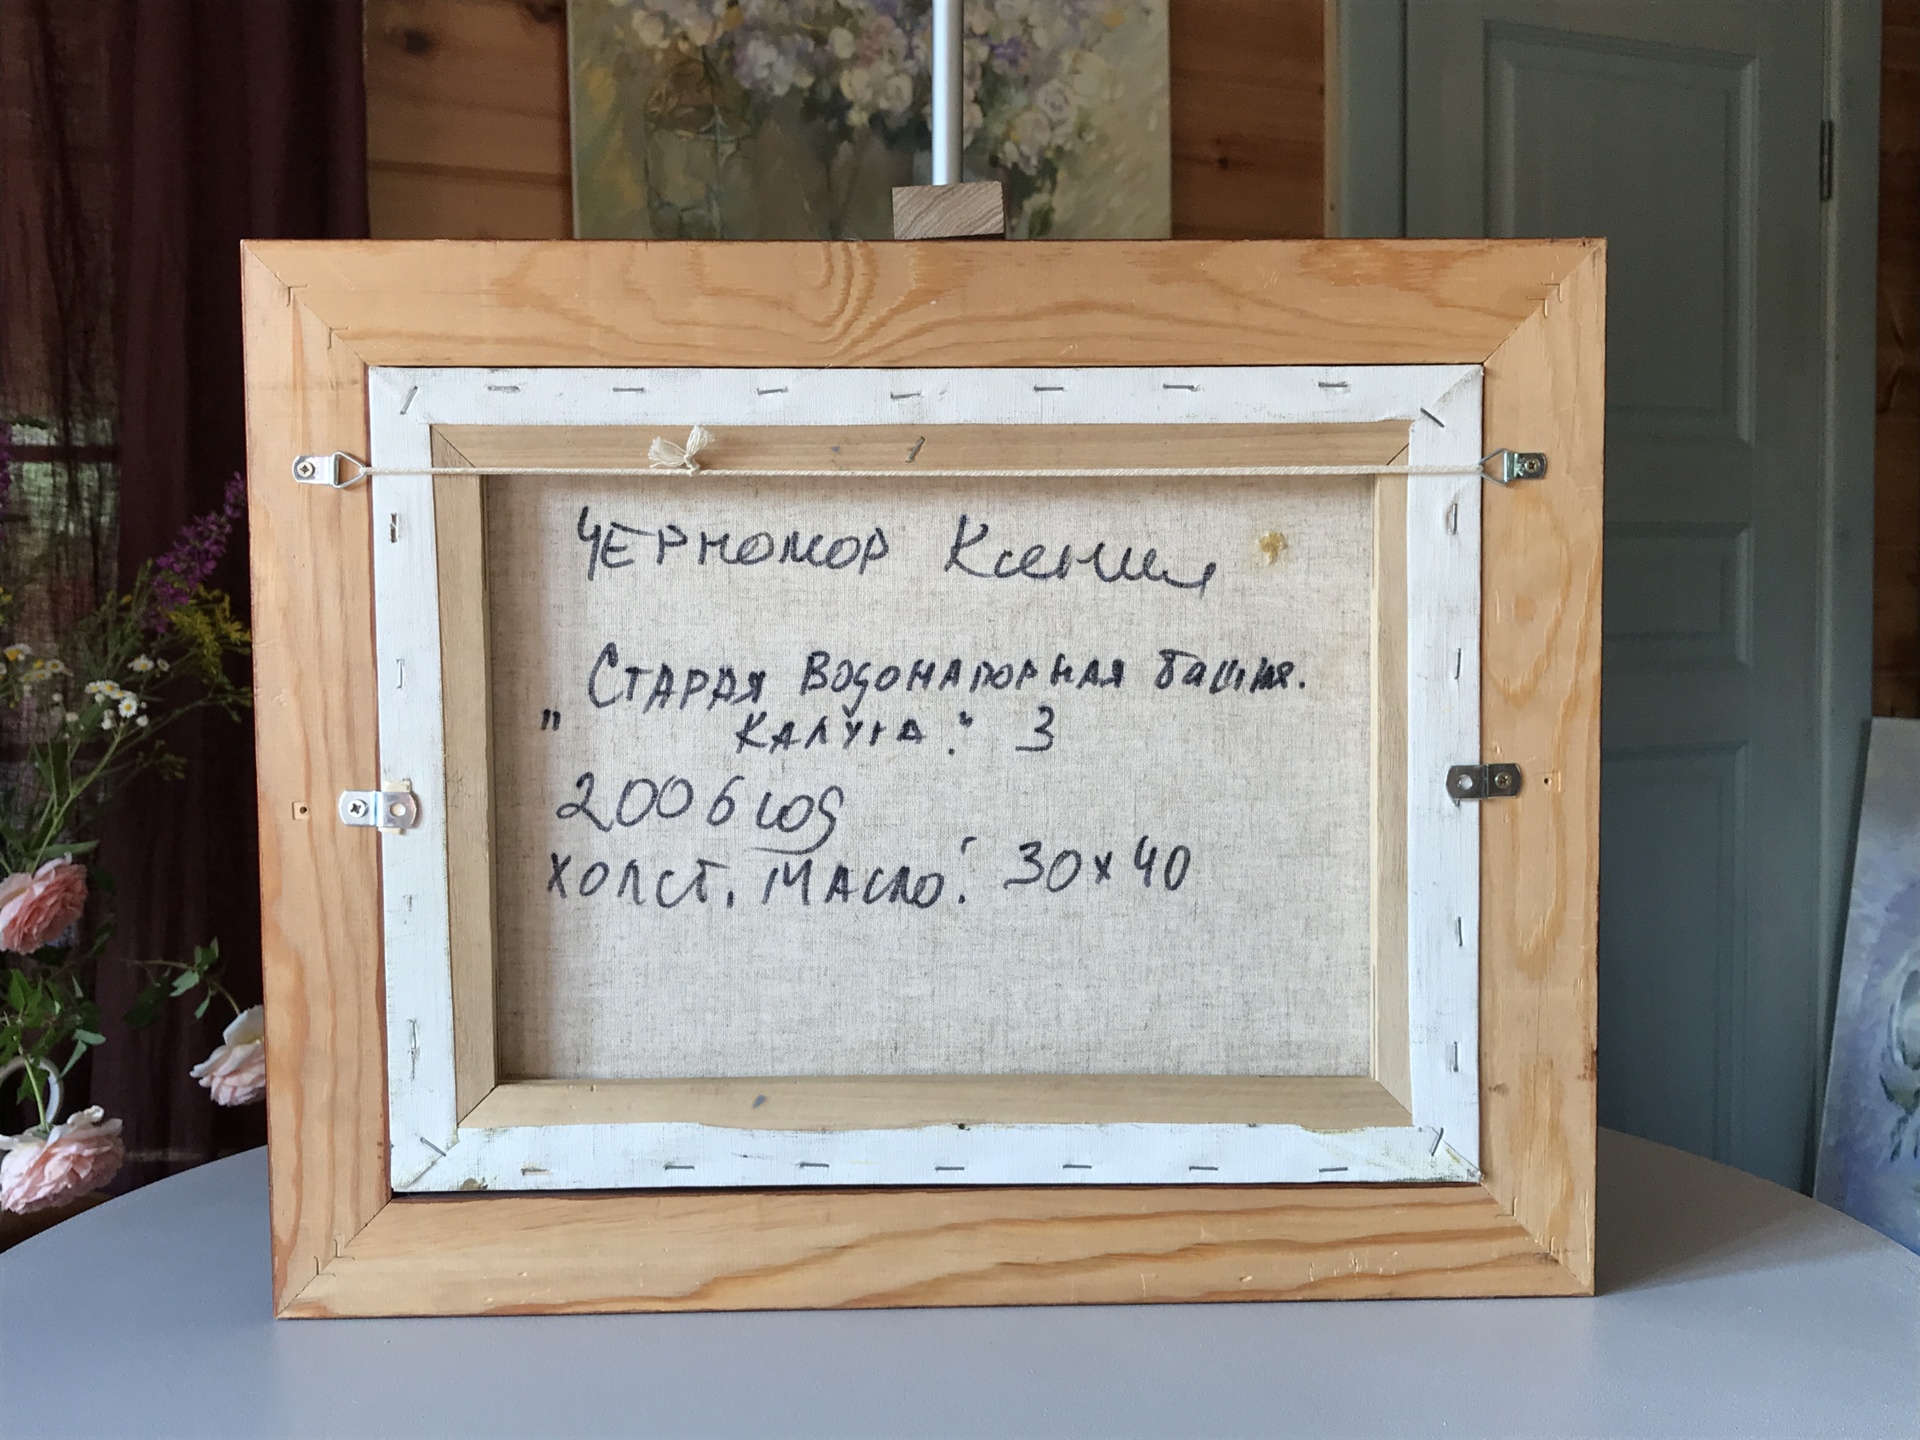 ЧЕРНОМОР Ксения
Старая Водонапорная башня.
" Калуга." 3
2006 год
Холст, Масло. 30x40